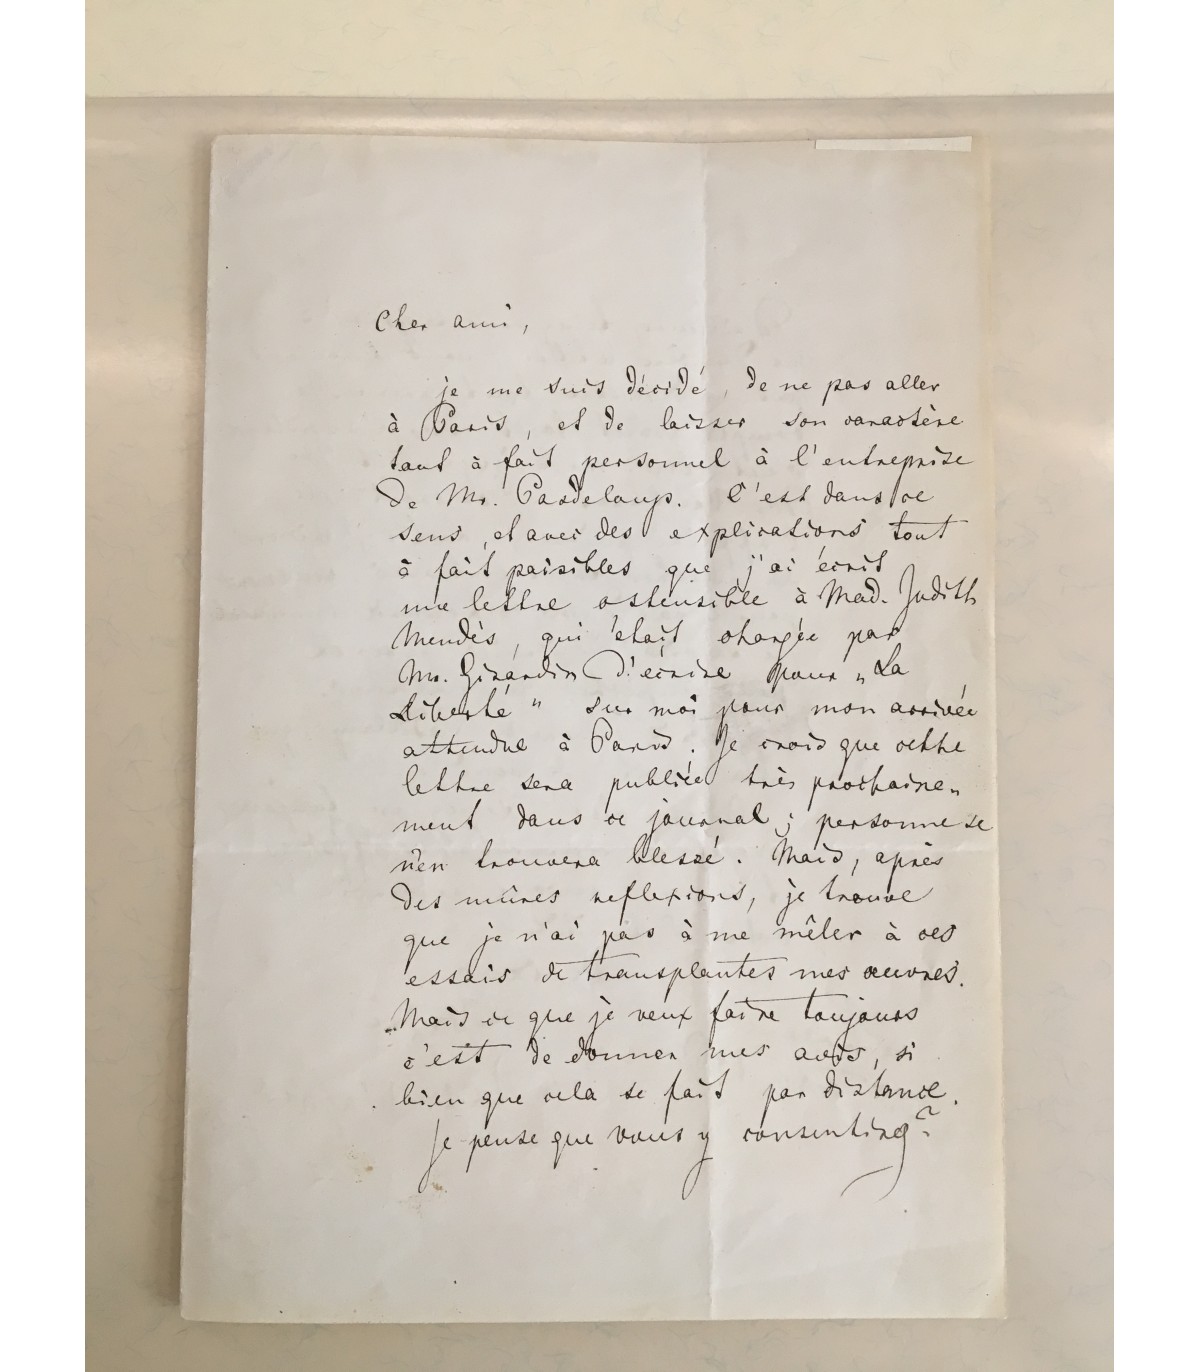 Cher ami,
je me suis décidé, de ne pas aller
à Paris, et de laisser son caractère
tout à fait personnel à l'entreprise
de Mr. Pasdeloup. C'est dans ce
sens, et avec des explications tout
à fait paisibles que j'ai écrit
une lettre ostensible à Mad. Judith
Mendès, qui était chargée par
Mr. Girardin d'écrire pour „La
Liberté" sur moi pour mon arrivée
attendue à Paris. Je crois que cette
lettre sera publiée très prochaine„
ment dans ce journal; personne se
n'en trouvera blessé. Mais, après
des mûres reflexions, je trouve
que je n'ai pas à me mêler à ces
essais de transplantes mes œuvres.
Mais ce que je veux faire toujours
c'est de donner mes avis, si
bien que cela se fait par distance.
Je pense que vous y consentirez?